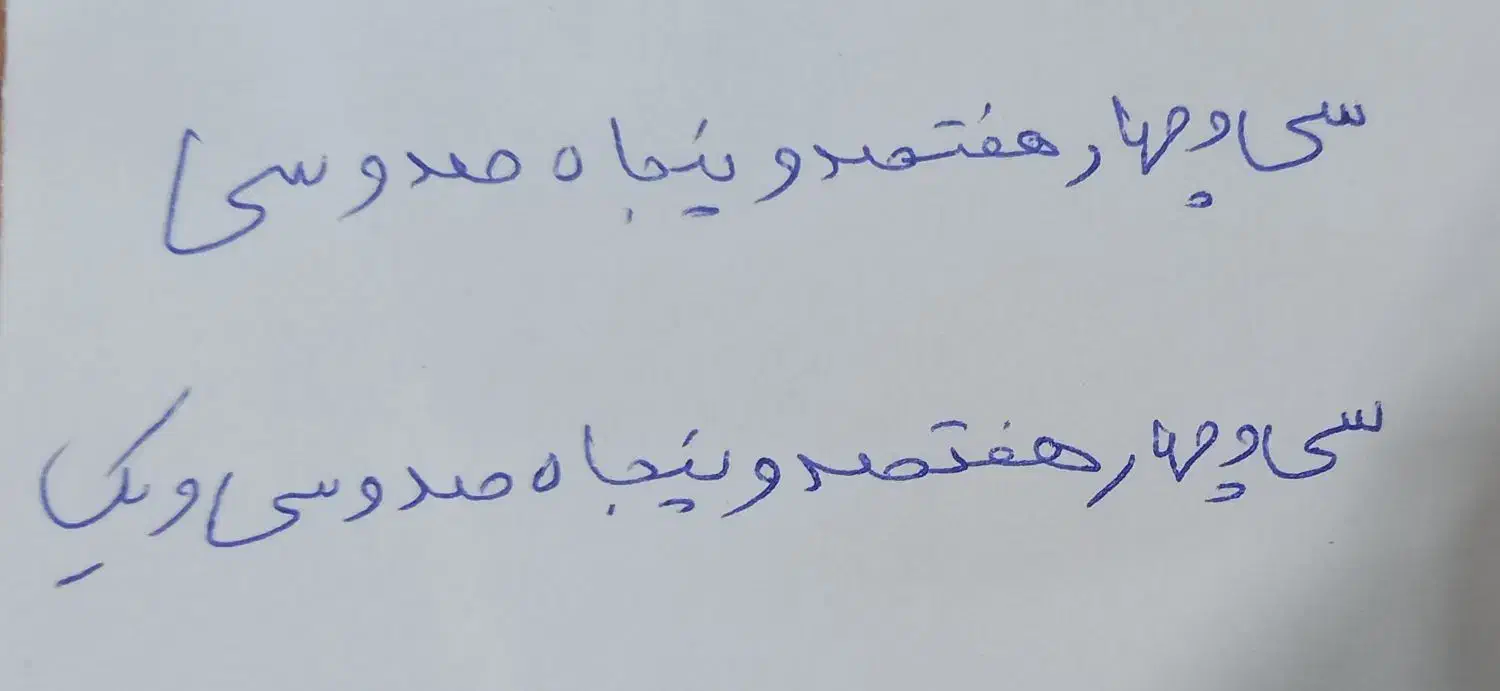 سی و چهار هفتصد و پنجاه صد و سی
سی و چهار هفتصد و پنجاه صد و سی و یک